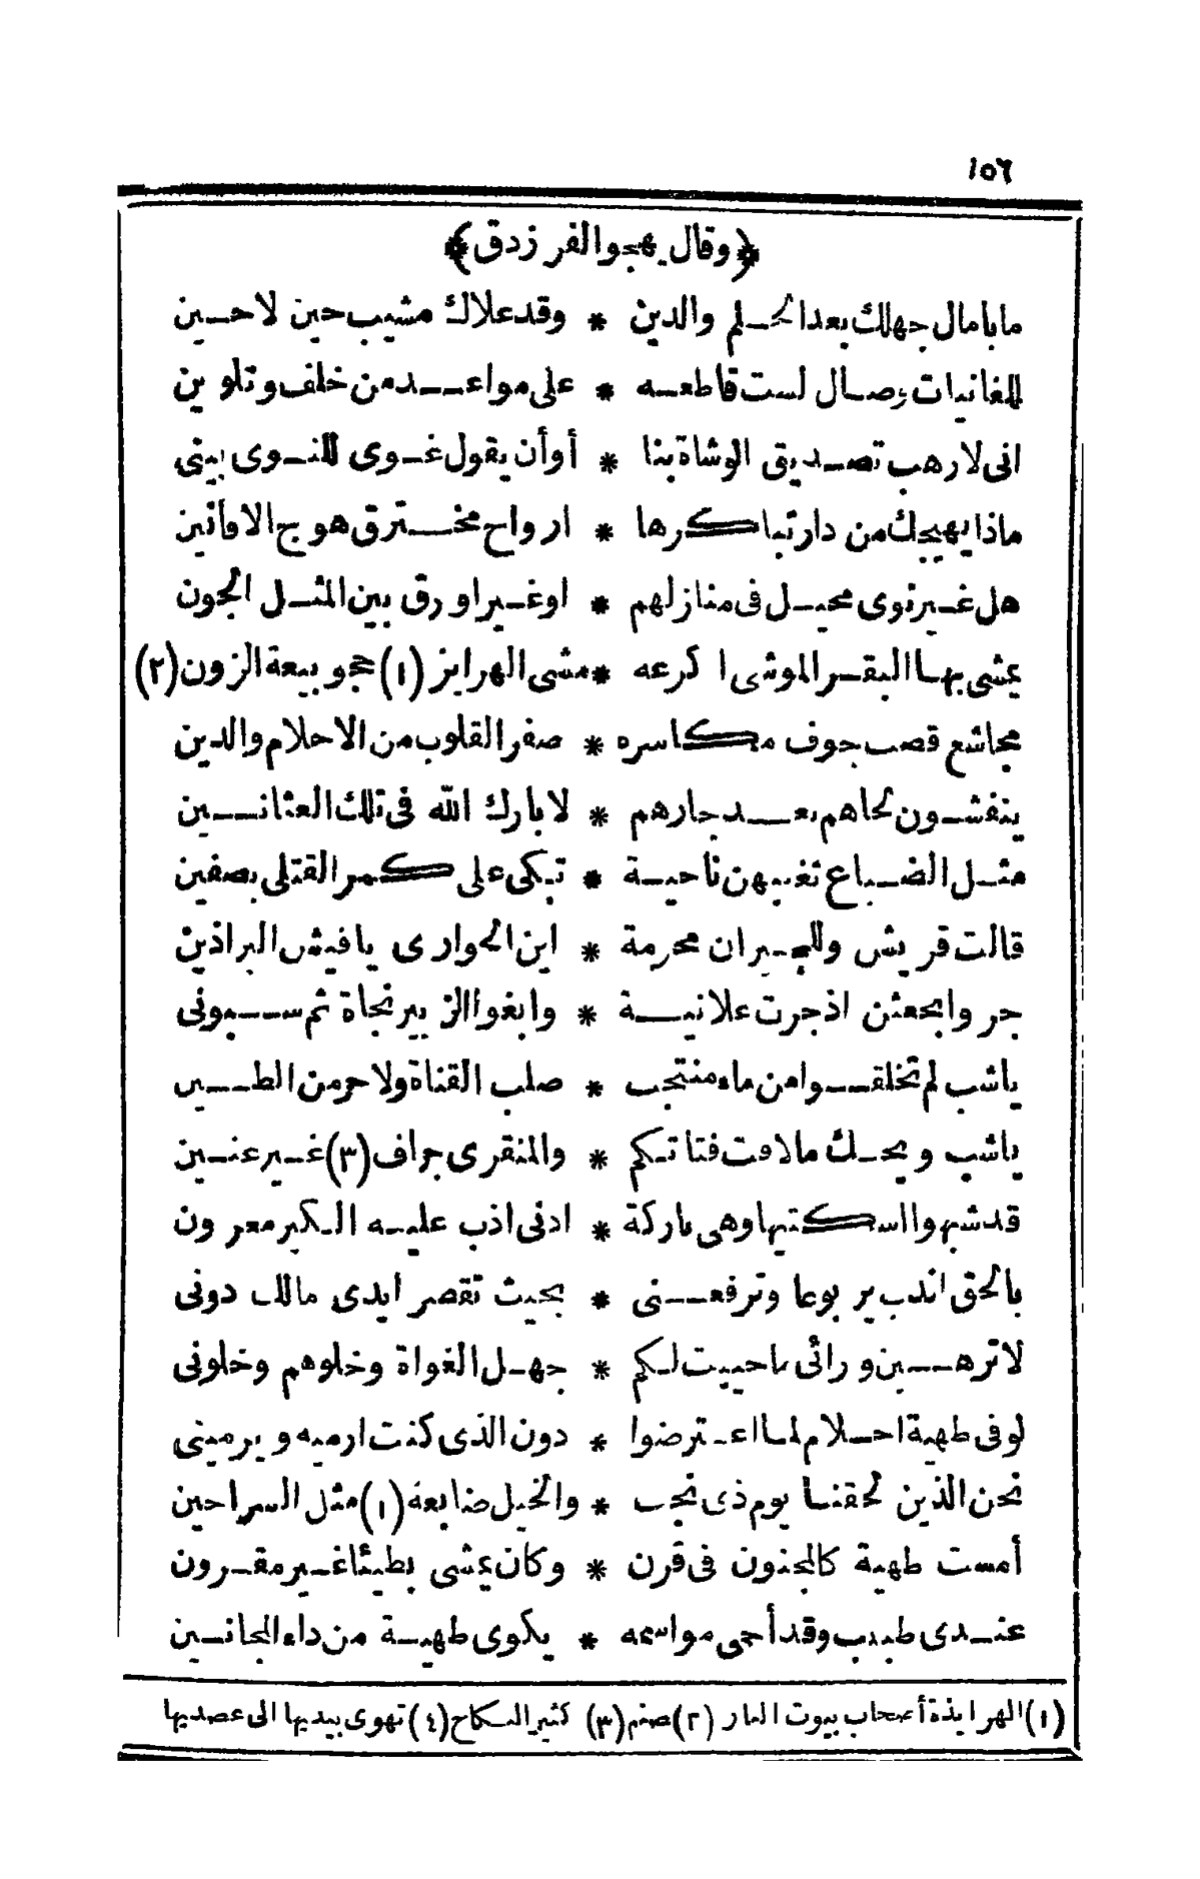 ١٥٦
﴿وقال يهجو الفرزدق﴾
ما بال جهلك بعد الحلم والدين * وقد علاك مشيب حين لا حين
للغانيات وصال لست قاطعه * على مواعد من خلف وتلوين
انى لارهب تصديق الوشاة بنا * أو أن يقول غوى للنوى بينى
ماذا يهيجك من دار تباكرها * ارواح مخترق هوج الافانين
هل غير نوى محيل فى منازلهم * او غير اورق بين المثل الجون
يمشى بها البقر الموشى اكرعه * مشى الهرابز (١) حجو بيعة الزون (٢)
مجاشع قصب جوف مكاسره * صفر القلوب من الاحلام والدين
ينفشون لحاهم بعد جارهم * لا بارك الله فى تلك العثانين
مثل الضباع تغبيهن ناحية * تبكى على كمر القتلى بصفين
قالت قريش وللجيران محرمة * اين الحوارى يا فيش البراذين
جروا بجعثن اذ جرت علانية * وابغوا الزبير نجاة ثم سبونى
ياشب لم تخلقوا من ماء منتجب * صلب القناة ولا حر من الطين
ياشب ويحك مالاقت فتاتكم * والمنقرى جراف (٣) غير عنين
قد شهوا اسكتيها وهى باركة * ادنى اذب عليه الكبر معرون
بالحق اندب يربوعا وترفعنى * بحيث تقصر ايدى مالك دونى
لا ترهبن ورائى ما حييت لكم * جهل الغواة وخلوهم وخلونى
لو فى طهية احلام لما اعترضوا * دون الذى كنت ارميه ويرمينى
نحن الذين لحقنا يوم ذى نجب * والخيل ضابعة (١) مثل السراحين
أمست طهية كالمجنون فى قرن * وكان يمشى بطيئا غير مقرون
عندى طبيب وقد أحمى مواسمه * يكوى طهية من داء المجانين
(١) الهرابذة أصحاب بيوت النار (٢) صنم (٣) كثير النكاح (٤) تهوى بيديها الى عضديها